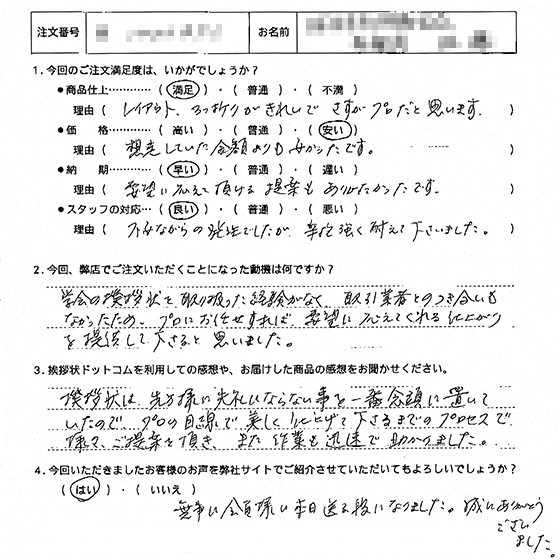 注文番号 お名前
1.今回のご注文満足度は、いかがでしょうか?
●商品仕上…………( 満足 )・( 普通 )・( 不満 )
理由( レイアウト、三つ折りがきれいで さすがプロだと思います. )
●価 格…………( 高い )・( 普通 )・( 安い )
理由( 想定していた金額よりも安かったです。 )
●納 期…………( 早い )・( 普通 )・( 遅い )
理由( 要望に応えて頂ける提案も ありがたかったです. )
●スタッフの対応…( 良い )・( 普通 )・( 悪い )
理由( 不慣れながらの発注でしたが、辛抱強く耐えて下さいました。 )
2.今回、弊店でご注文いただくことになった動機は何ですか?
の挨拶状を取り扱った経験がなく、取引業者とのつき合いも
なかったため、プロにお任せすれば、要望に応えてくれる仕上がり
を提供して下さると思いました。
3.挨拶状ドットコムを利用しての感想や、お届けした商品の感想をお聞かせください。
挨拶状は、先方様に失礼にならない事を一番念頭に置いて
いたので、プロの目線で美しく仕上げて下さるまでのプロセスで
様々、ご提案を頂き、また作業も迅速で助かりました。
4.今回いただきましたお客様のお声を弊社サイトでご紹介させていただいてもよろしいでしょうか?
( はい )・( いいえ )
無事に会員様に本日送る段になりました。誠にありがとう
ござい
ました。